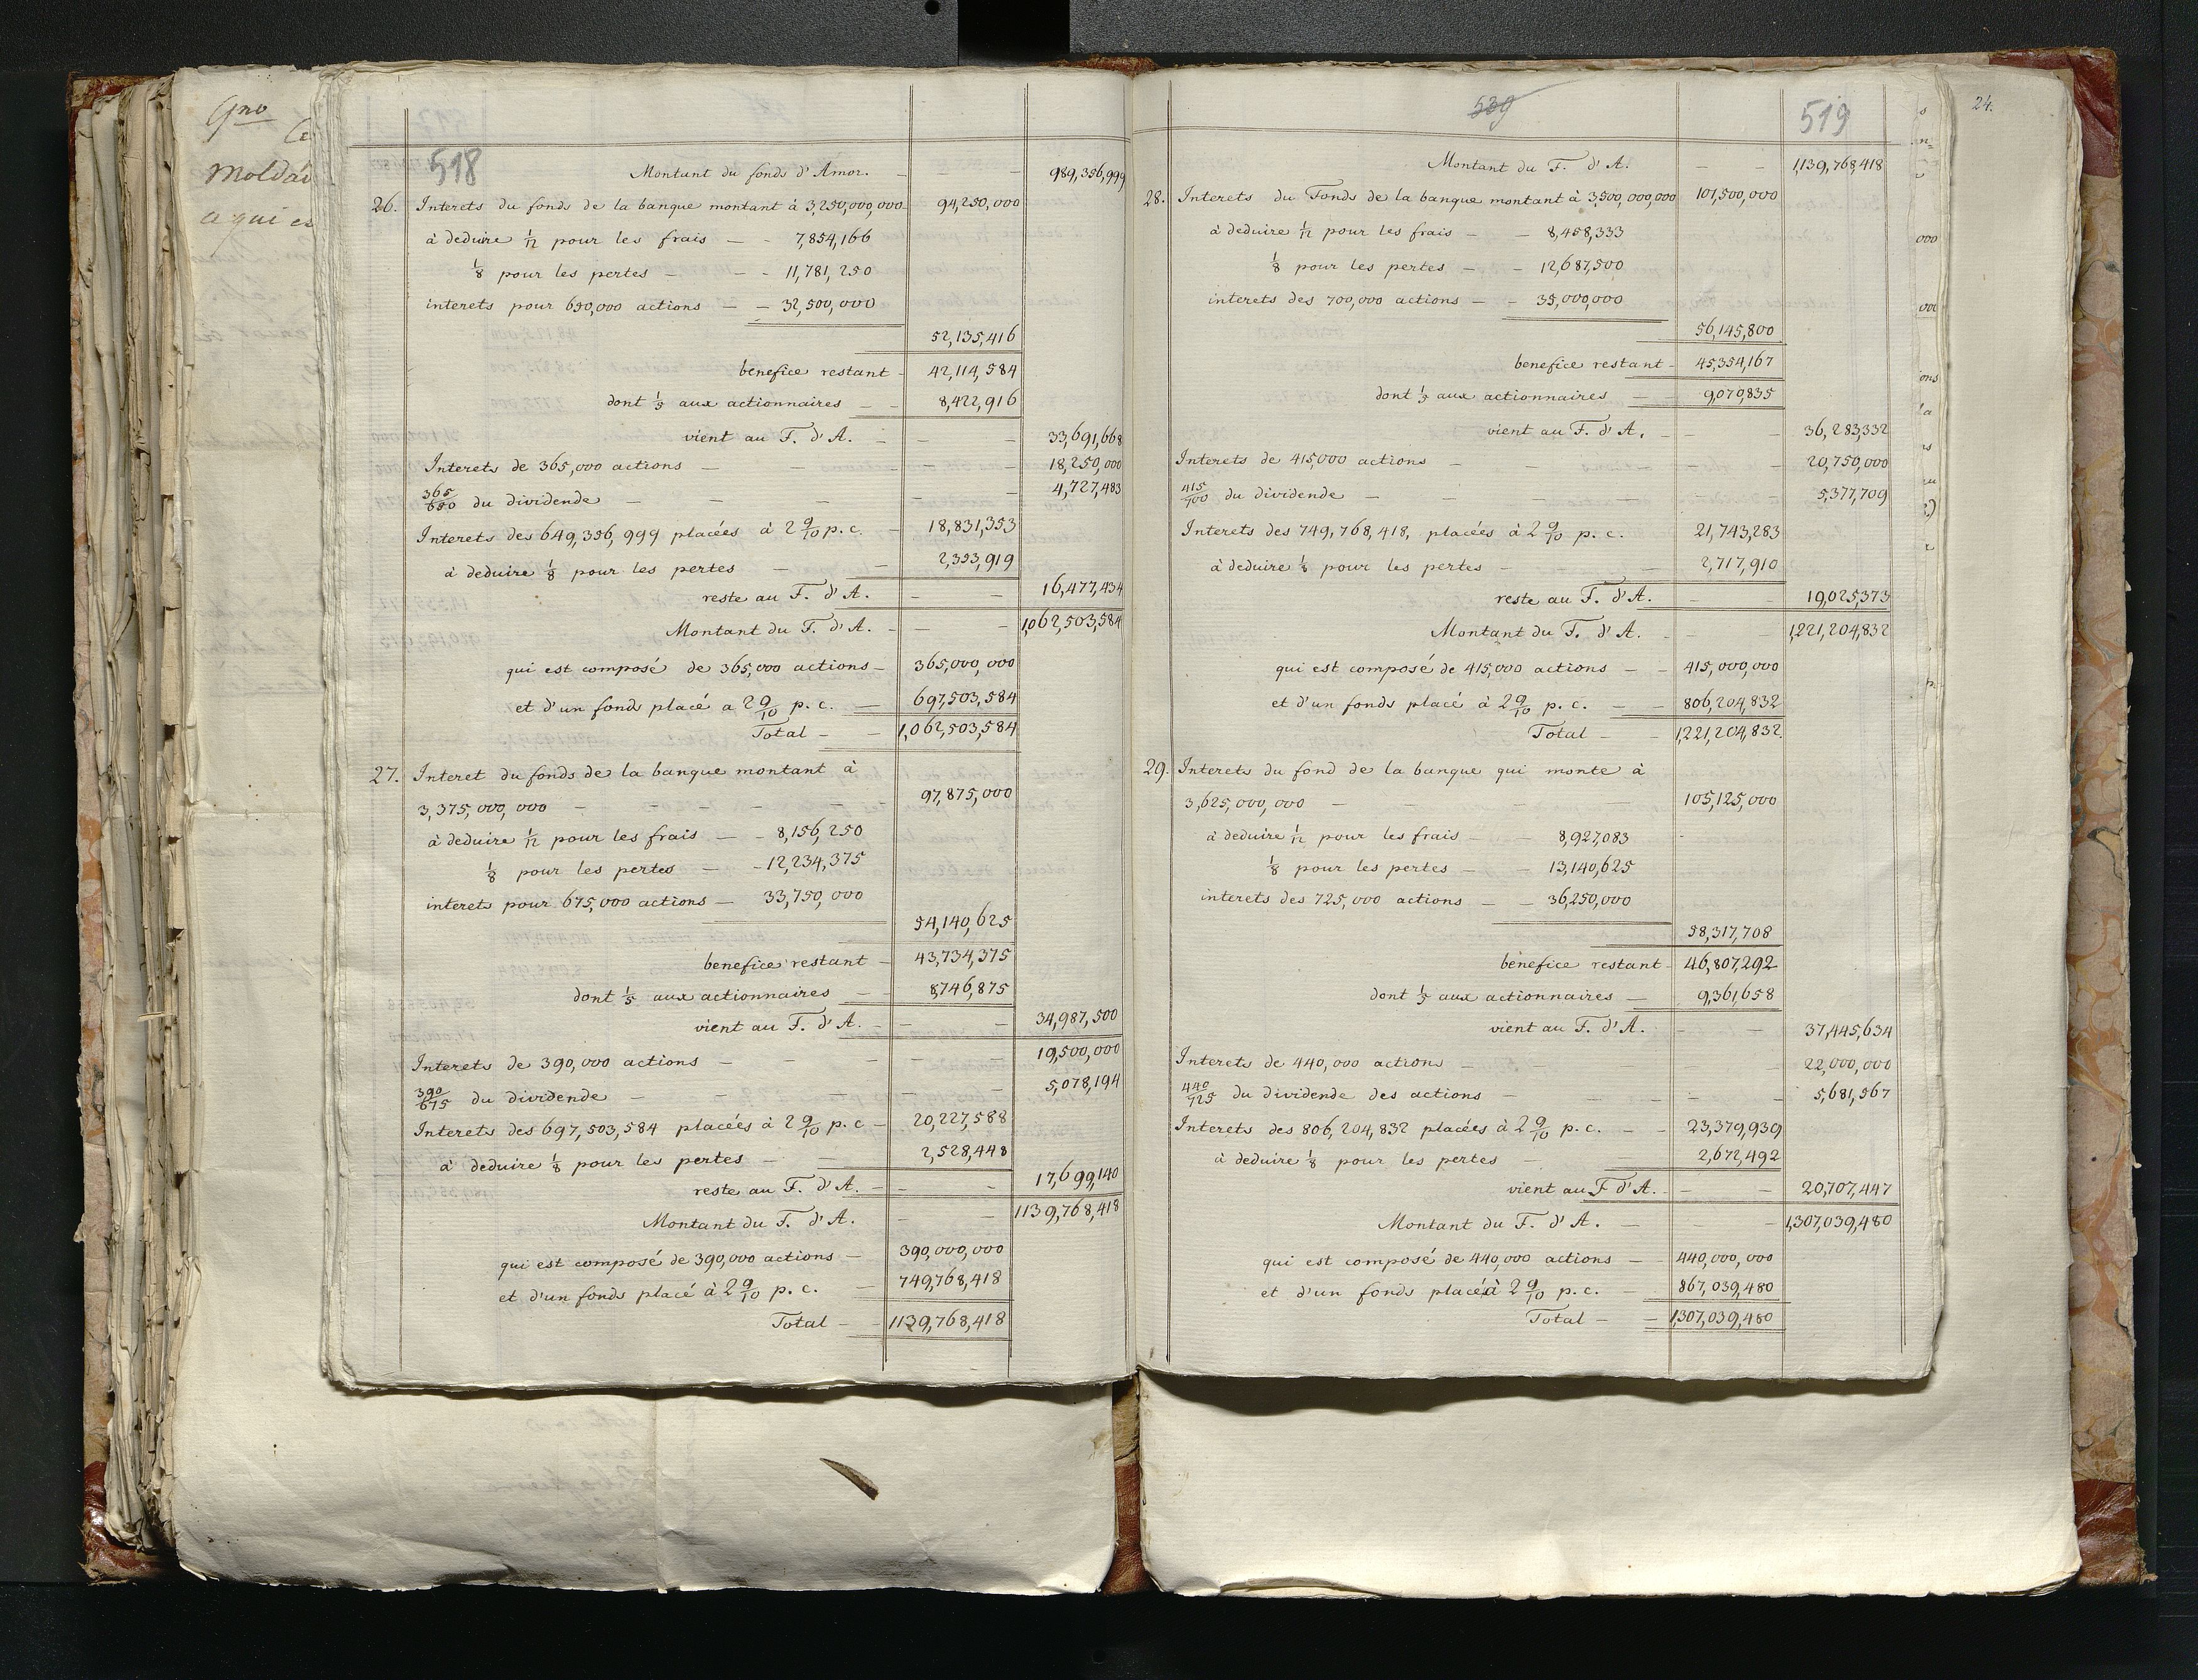 9no
Ce
Moldav
a qui es
518
Montant du fonds d'Amor. — — — 989,356,999
26. Interets du fonds de la banque montant à 3,250,000,000 94,250,000
à deduire 1/12 pour les frais — - 7,854,166
1/8 pour les pertes - - - 11,781,250
interets pour 650,000 actions — - 32,500,000
52,135,416
benefice restant - 42,114,584
dont 1/5 aux actionnaires — - 8,422,916
vient au F. d'A. - — — 33,691,668
Interets de 365,000 actions — - - - — 18,250,000
365/650 du dividende — - — - — 4,727,483
Interets des 649,356,999 placées à 2 9/10 p.c. - 18,831,353
à deduire 1/8 pour les pertes — - 2,353,919
reste au F. d'A. - — 16,477,434
Montant du F. d'A. - — — 1,062,503,584
qui est composé de 365,000 actions — 365,000,000
et d'un fonds placé a 2 9/10 p.c. — 697,503,584
Total - — 1,062,503,584
27. Interet du fonds de la banque montant à
3,375,000,000 - - - - - - 97,875,000
à deduire 1/12 pour les frais — - 8,156,250
1/8 pour les pertes — - 12,234,375
interets pour 675,000 actions — 33,750,000
54,140,625
benefice restant - 43,734,375
dont 1/5 aux actionnaires — - 8,746,875
vient au F. d'A. - — — 34,987,500
Interets de 390,000 actions — - - - — 19,500,000
390/675 du dividende — - - - — 5,078,194
Interets des 697,503,584 placées à 2 9/10 p.c - 20,227,588
à deduire 1/8 pour les pertes — - 2,528,448
reste au F. d'A. - — - 17,699,140
Montant du F. d'A. - — 1139,768,418
qui est composé de 390,000 actions — 390,000,000
et d'un fonds placé à 2 9/10 p.c. — 749,768,418
Total — - 1139,768,418
539
519
Montant du F. d'A. — - 1,139,768,418
28. Interets du Fonds de la banque montant à 3,500,000,000 101,500,000
à deduire 1/12 pour les frais - - 8,458,333
1/8 pour les pertes — - 12,687,500
interets des 700,000 actions — - 35,000,000
56,145,800
benefice restant - 45,354,167
dont 1/5 aux actionnaires — - 9,070,835
vient au F. d'A. - — - 36,283,332
Interets de 415,000 actions — - — - - 20,750,000
415/700 du dividende — - - - - 5,377,709
Interets des 749,768,418, placées à 2 9/10 p.c. 21,743,283
à deduire 1/8 pour les pertes - - 2,717,910
reste au F. d'A. - — 19,025,373
Montant du F. d'A. - - - 1,221,204,832
qui est composé de 415,000 actions — - 415,000,000
et d'un fonds placé à 2 9/10 p.c. — - 806,204,832
Total — - 1,221,204,832.
29. Interets du fond de la banque qui monte à
3,625,000,000 — - - - 105,125,000
à deduire 1/12 pour les frais - - 8,927,083
1/8 pour les pertes — - 13,140,625
interets des 725,000 actions — - 36,250,000
58,317,708
bénefice restant - 46,807,292
dont 1/5 aux actionnaires — 9,361,658
vient au F. d'A. - — - 37,445,634
Interets de 440,000 actions - - - - - 22,000,000
440/725 du dividende des actions — - - - 5,681,567
Interets des 806,204,832 placées à 2 9/10 p.c. - - 23,379,939
à deduire 1/8 pour les pertes — - 2,672,492
vient au F d'A. - — - 20,707,447
Montant du F. d'A. — - - 1,307,039,480
qui est composé de 440,000 actions — - 440,000,000
et d'un fonds placéà 2 9/10 p.c. - 867,039,480
Total - — 1,307,039,480
24.
000
ons
la